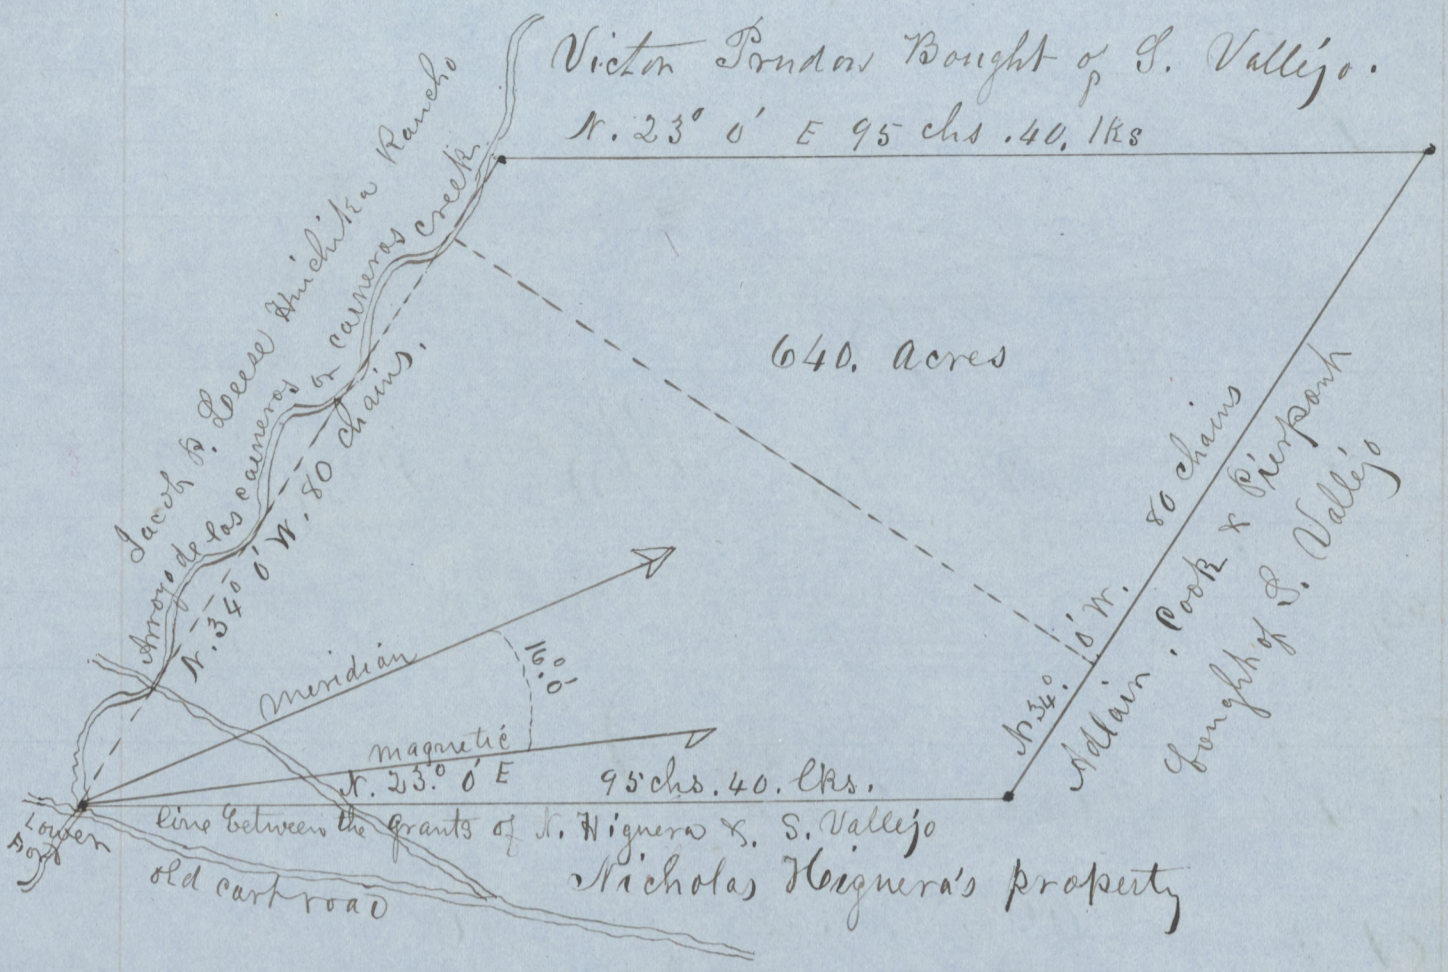 Victor Prudon Bought of S. Vallejo.
N. 23° 0' E 95 chs .40. lks
Jacob P. Leese Huichika Rancho
Arroyo de los carneros or carneros creek.
N. 34° 0' W. 80 chains.
640. acres
80 chains
N 34° 0' W.
Adlain. Cook & Pierpont
bought of S. Vallejo
meridian
16° 0'
magnetic
N. 23.° 0' E 95 chs. 40. lks.
line between the grants of N. Higuera & S. Vallejo
Nicholas Higuera's property
Lower
old cart road